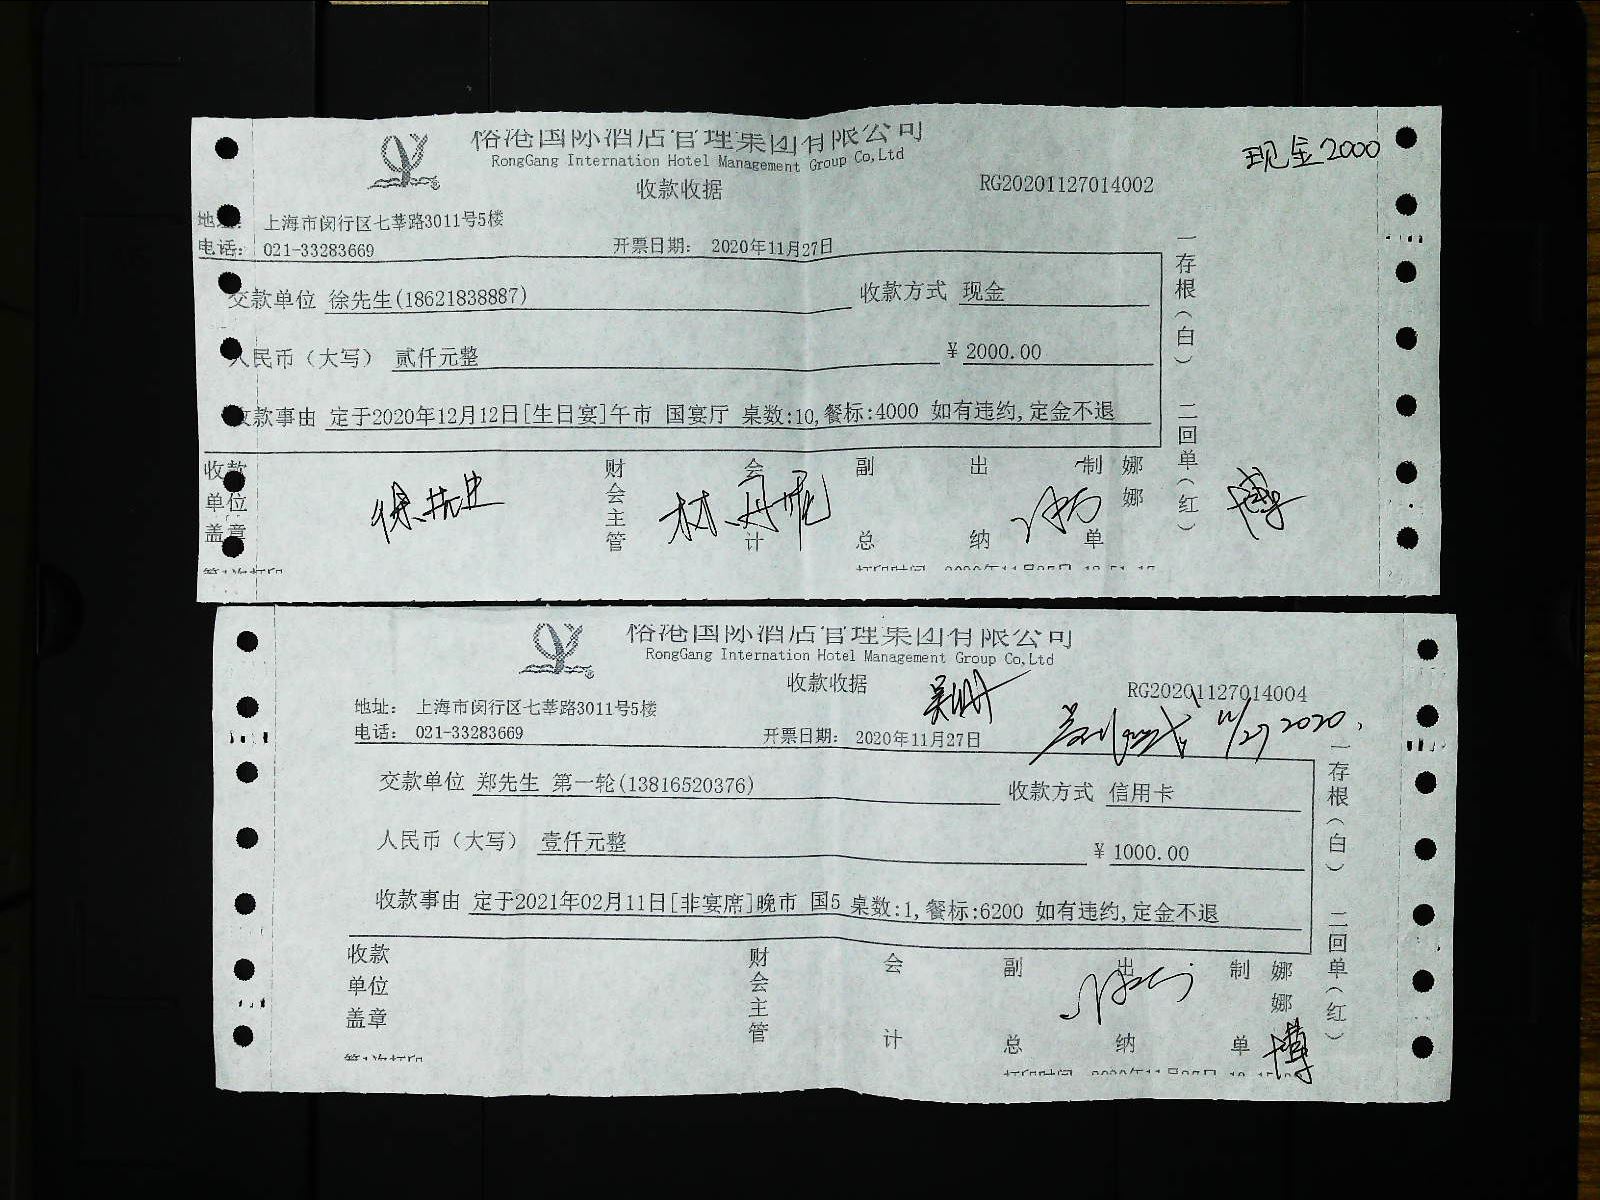 榕港国际酒店管理集团有限公司
RongGang Internation Hotel Management Group Co,Ltd
现金2000
收款收据
RG20201127014002
地址： 上海市闵行区七莘路3011号5楼
电话： 021-33283669
开票日期： 2020年11月27日
交款单位 徐先生(18621838887)
收款方式 现金
人民币（大写） 贰仟元整
￥ 2000.00
收款事由 定于2020年12月12日[生日宴]午市 国宴厅 桌数:10,餐标:4000 如有违约,定金不退
一存根（白） 二回单（红）
收款单位盖章
徐先生
财会主管
会计
副总
出纳
制单
娜娜
博
第1次打印
打印时间 2020年11月27日
榕港国际酒店管理集团有限公司
RongGang Internation Hotel Management Group Co,Ltd
收款收据
RG20201127014004
地址： 上海市闵行区七莘路3011号5楼
电话： 021-33283669
开票日期： 2020年11月27日
11/27 2020.
交款单位 郑先生 第一轮(13816520376)
收款方式 信用卡
人民币（大写） 壹仟元整
￥ 1000.00
收款事由 定于2021年02月11日[非宴席]晚市 国5 桌数:1,餐标:6200 如有违约,定金不退
一存根（白） 二回单（红）
收款单位盖章
财会主管
会计
副总
出纳
制单
娜娜
博
第1次打印
打印时间 2020年11月27日